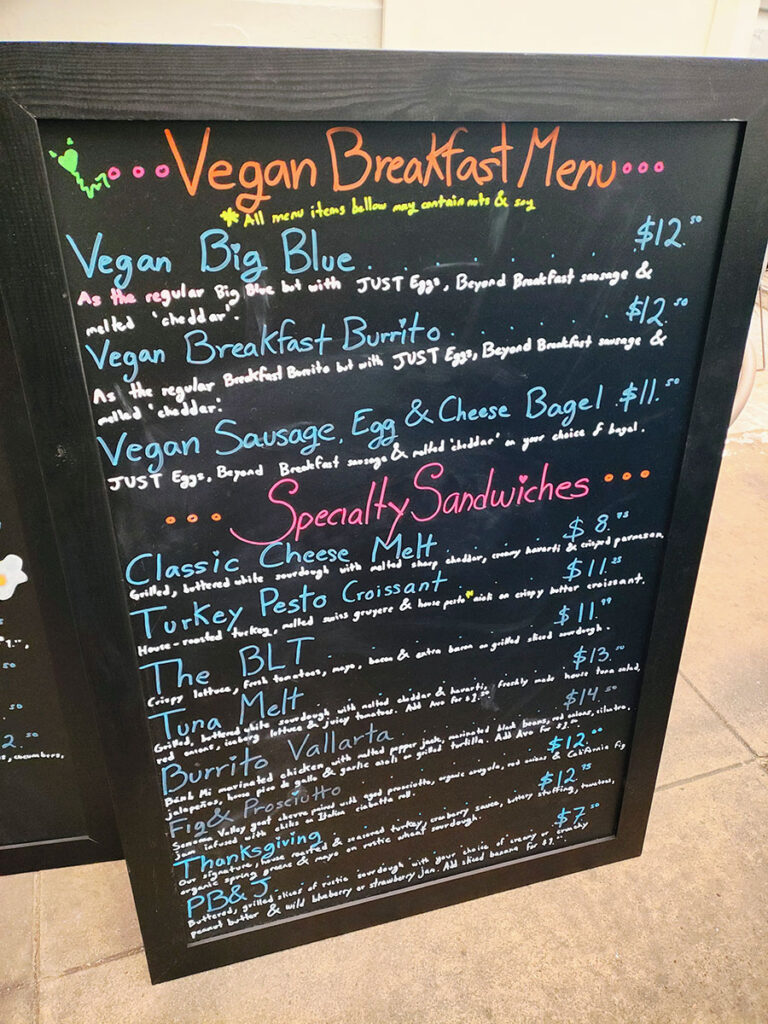 Vegan Breakfast Menu
*All menu items bellow may contain nuts & soy
Vegan Big Blue . . . . . . . $12.50
As the regular Big Blue but with JUST Eggs, Beyond Breakfast sausage &
melted 'cheddar'.
Vegan Breakfast Burrito . . . . . . $12.50
As the regular Breakfast Burrito but with JUST Eggs, Beyond Breakfast sausage &
melted 'cheddar'.
Vegan Sausage, Egg & Cheese Bagel . $11.50
JUST Eggs, Beyond Breakfast sausage & melted 'cheddar' on your choice of bagel.
Specialty Sandwiches
Classic Cheese Melt $8.75
Grilled, buttered white sourdough with melted sharp cheddar, creamy havarti & crisped parmesan.
Turkey Pesto Croissant $11.25
House-roasted turkey, melted swiss gruyere & house pesto* aioli on crispy butter croissant.
The BLT $11.99
Crispy lettuce, fresh tomatoes, mayo, bacon & extra bacon on grilled sliced sourdough.
Tuna Melt $13.50
Grilled, buttered white sourdough with melted cheddar & havarti, freshly made house tuna salad,
red onions, iceberg lettuce & juicy tomatoes. Add Avo for
Burrito Vallarta $14.50
Bánh Mi marinated chicken with melted pepper jack, marinated black beans, red onions, cilantro,
jalapeños, house pico de gallo & garlic aioli on grilled tortilla. Add Avo for
Fig & Prosciutto $12.00
Sonoma Valley goat chevre paired with aged prosciutto, organic arugula, red onions & California fig
jam infused with chilis on Italian ciabatta roll.
Thanksgiving $12.75
Our signature, house roasted & seasoned turkey, cranberry sauce, buttery stuffing, tomatoes,
organic spring greens & mayo on rustic wheat sourdough.
PB&J $7.50
Buttered, grilled slices of rustic sourdough with your choice of creamy or crunchy
peanut butter & wild blueberry or strawberry jam. Add sliced banana for